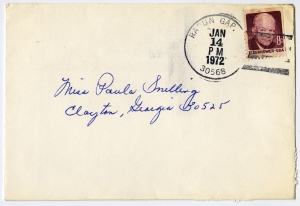 RABUN GAP
JAN
14
PM
1972
30568
8c
EISENHOWER·USA
Miss Paula Snelling
Clayton, Georgia 30525